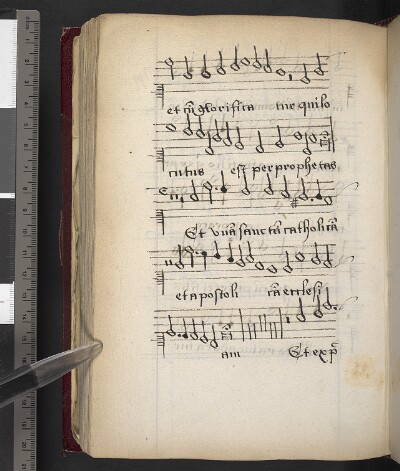 et cū glorifica tur qui lo
cutus est per prophetas
Et unā sanctā catholicā
et apostoli cā ecclesi
am Et exp̄